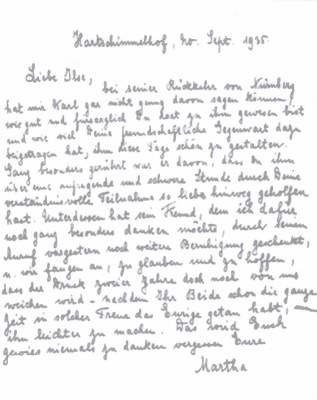 Hartschimmelhof, 20. Sept. 1935.
Liebe Ilse,
bei seiner Rückkehr von Nürnberg
hat mir Karl gar nicht genug davon sagen können,
wie gut und fürsorglich Du hast zu ihm gewesen bist
und wie viel Deine freundschaftliche Gegenwart dazu
beigetragen hat, ihm diese Tage schön zu gestalten.
Ganz besonders gerührt war er davon, dass Du ihm
über eine aufregende und schwere Stunde durch Deine
verständnisvolle Teilnahme so lieb hinweg geholfen
hast. Unterdessen hat sein Freund, dem ich dafür
noch ganz besonders danken möchte, durch seinen
Anruf vorgestern noch weitere Beruhigung geschenkt,
u. wir fangen an, zu glauben und zu hoffen,
dass der Druck zweier Jahre doch noch von uns
weichen wird – nachdem Ihr Beide schon die ganze
Zeit in solcher Treue das Eurige getan habt, um
ihn leichter zu machen. Das wird Euch
gewiss niemals zu danken vergessen Eure
Martha